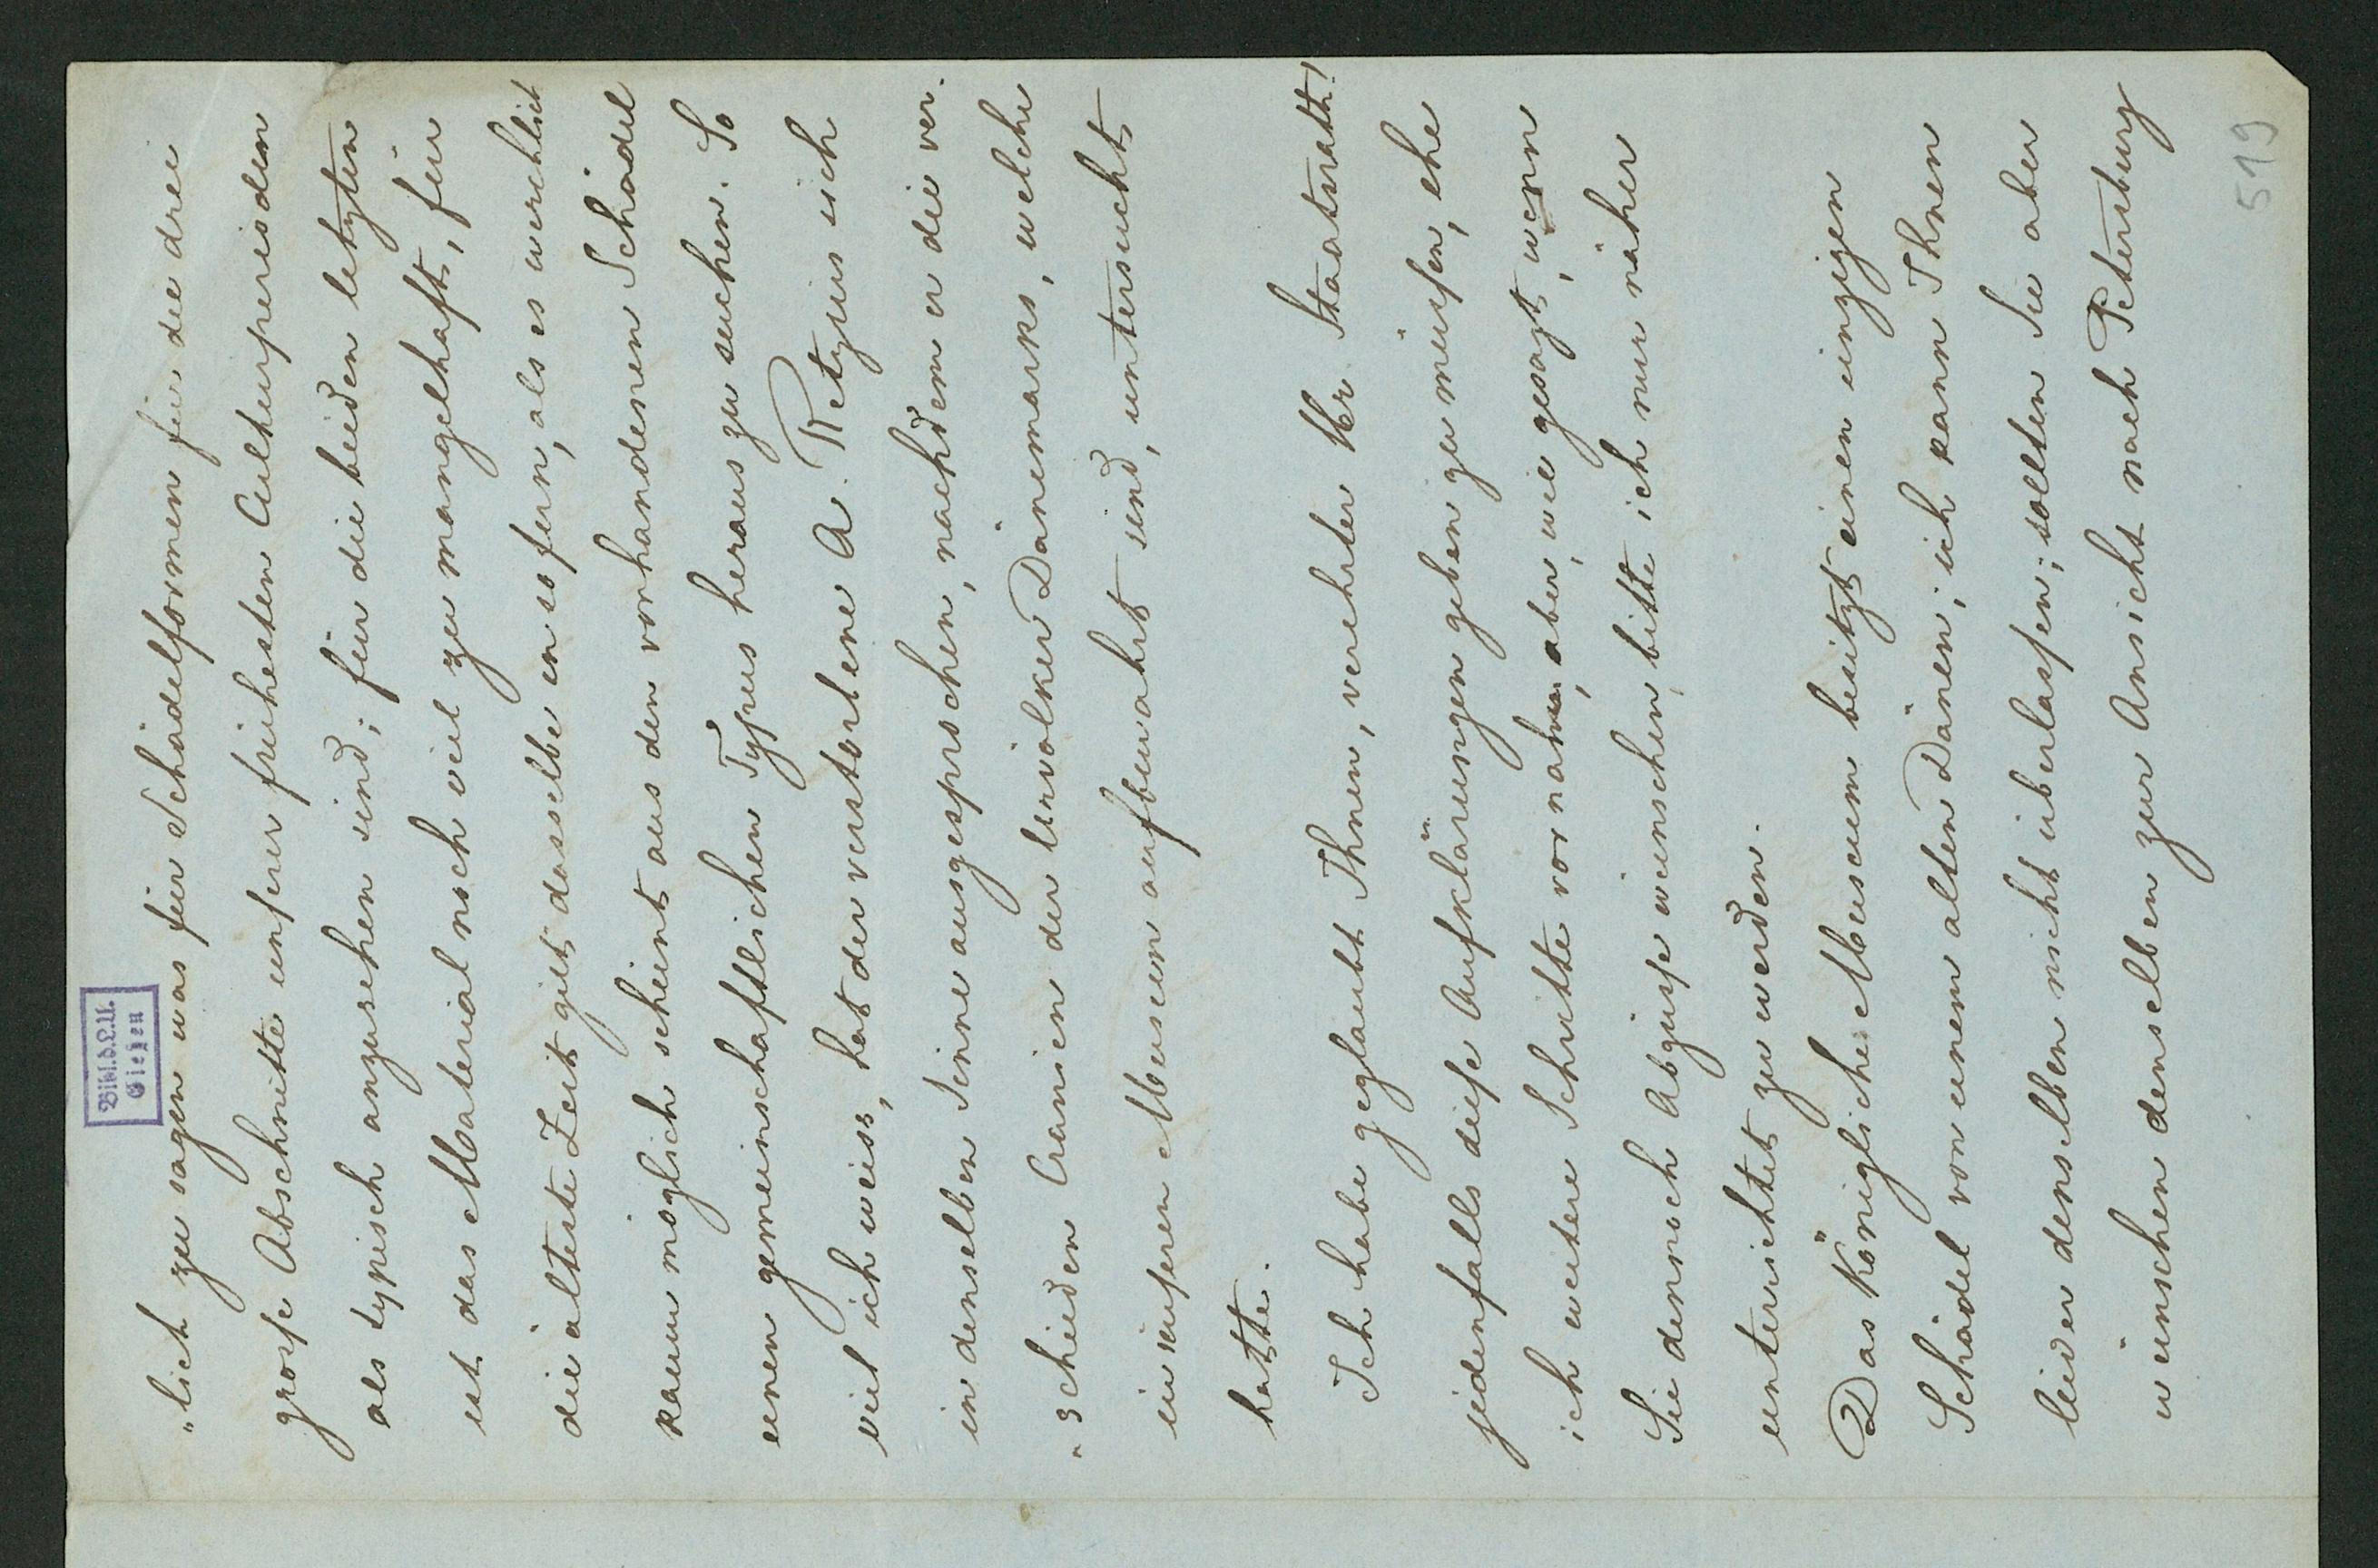 Bibl.d.L.U.
Gießen
„lich zu sagen was für Schädelformen für die drei
große Abschnitte unserer frühesten Culturperioden
als typisch anzusehen sind; für die beiden letzten
ist das Material noch viel zu mangelhaft, für
die älteste Zeit gilt dasselbe in so fern, als es
kaum möglich scheint aus den vorhandenen Schädel
einen gemeinschaftlichen Typus heraus zu suchen. So
viel ich weiss, hat der verstorlene A. Retzius sich
in denselben Sinne ausgesprochen, nachdem er die ver-
„schieden Cranien der Urvölker Dänemarks, welche
in unseren Museum aufbewahrt sind, untersucht
hatte.
Ich habe geglaubt Ihnen, verehrter Hr. Staatsrath!
jedenfalls diese Aufklärungen geben zu müßen, ehe
ich weitere Schritte vornahm, aber, wie gesagt, wenn
Sie dennoch Abgüße wünschen, bitte ich nur näher
unterrichtet zu werden.
Das Königliche Museum besitzt einen einzigen
Schädel von einem alten Dänen; ich kann Ihnen
leider denselben nicht überlaßen; sollten Sie aber
wünschen denselben zur Ansicht nach Petersburg
519